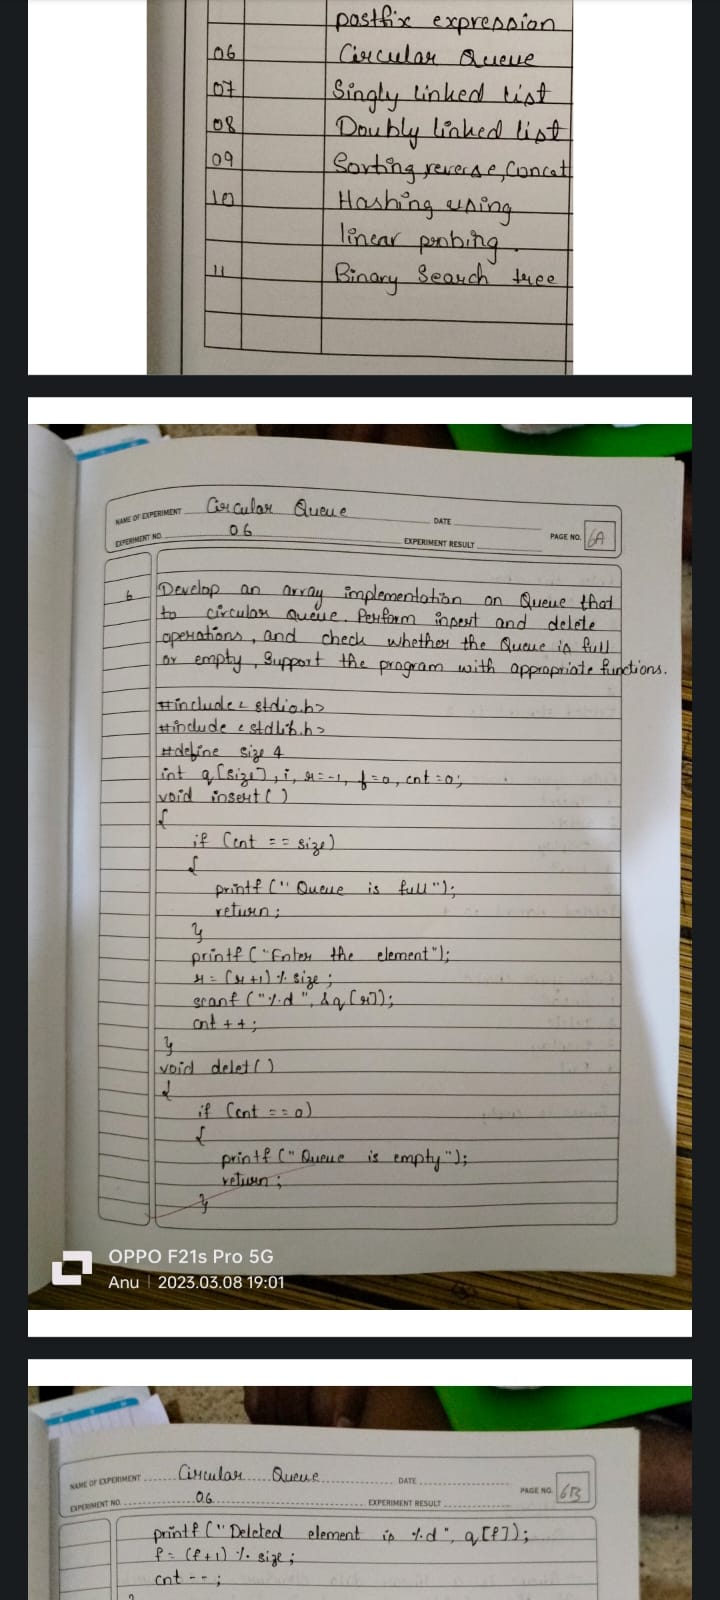 postfix expression
06 Circular Queue
07 Singly linked list
08 Doubly linked list
09 Sorting, reverse, Concat
10 Hashing using
linear probing.
11 Binary Search tree
NAME OF EXPERIMENT Circular Queue DATE
EXPERIMENT NO. 06 EXPERIMENT RESULT PAGE NO. 6A
6 Develop an array implementation on Queue that
to circular Queue. Perform insert and delete
operations, and check whether the Queue is full
or empty, Support the program with appropriate functions.
#include < stdio.h>
#include < stdlib.h>
#define size 4
int q[size], i, r=-1, f=0, cnt=0;
void insert()
{
if (cnt == size)
{
printf (" Queue is full");
return;
}
printf ("Enter the element");
r= (r+1) % size;
scanf ("%d", &q[r]);
cnt ++;
}
void delet()
{
if (cnt ==0)
{
printf (" Queue is empty");
return;
}
OPPO F21s Pro 5G
Anu | 2023.03.08 19:01
NAME OF EXPERIMENT Circular Queue DATE
EXPERIMENT NO. 06 EXPERIMENT RESULT PAGE NO. 6B
printf ("Deleted element is %d", q[f]);
f= (f+1) % size;
cnt --;